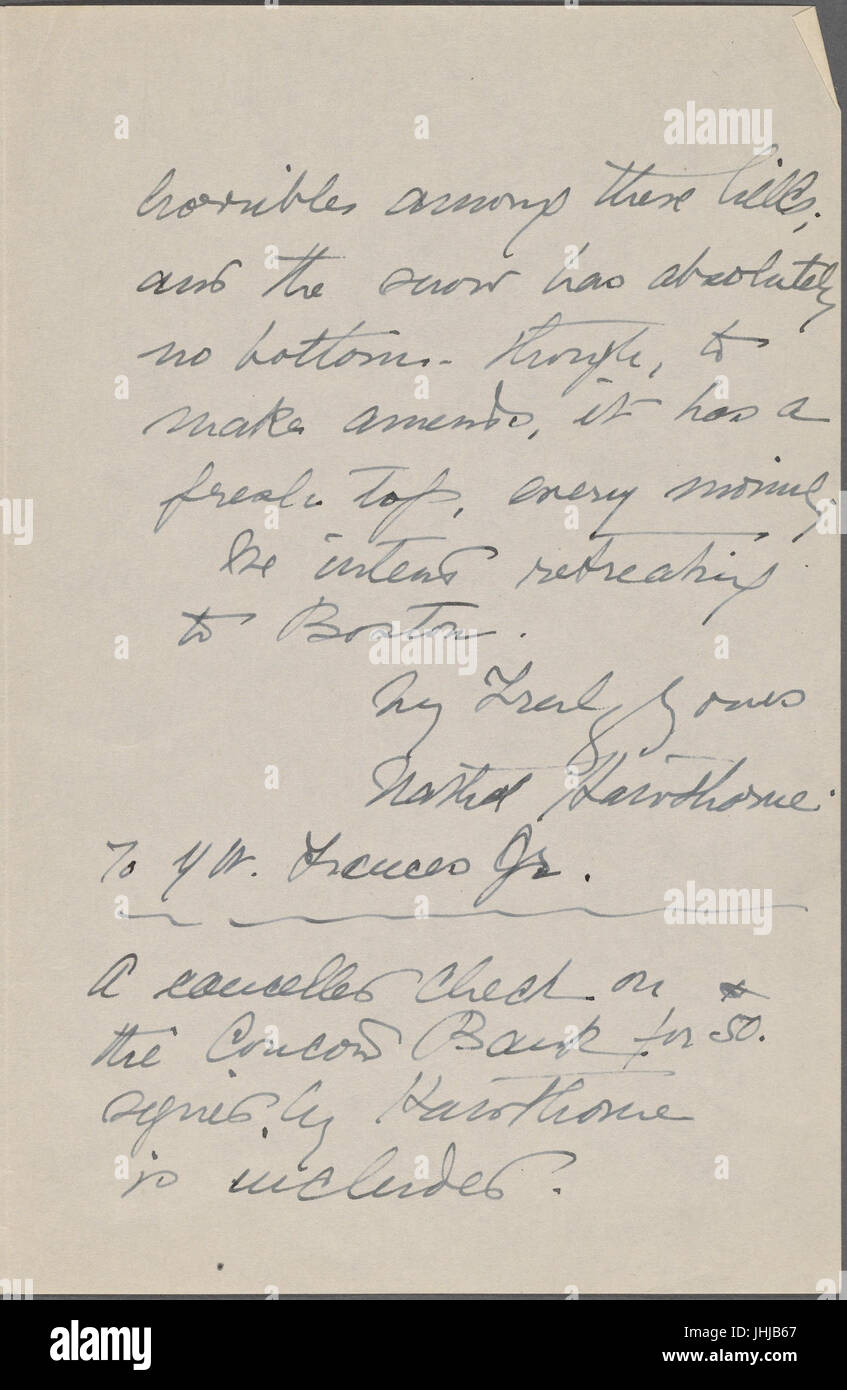 horribles among these hills,
and the snow has absolutely
no bottom - though, to
make amends, it has a
fresh top, every morning.
We intend retreating
to Boston.
Truly Yours
Nathel Hawthorne.
To W. Frances Jr.
A cancelled check on
the Concord Bank for 50.
signed by Hawthorne
is included.
alamy
alamy
Image ID: JHJB67
www.alamy.com